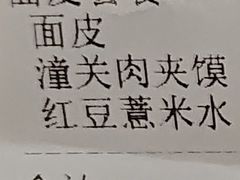 面皮
潼关肉夹馍
红豆薏米水